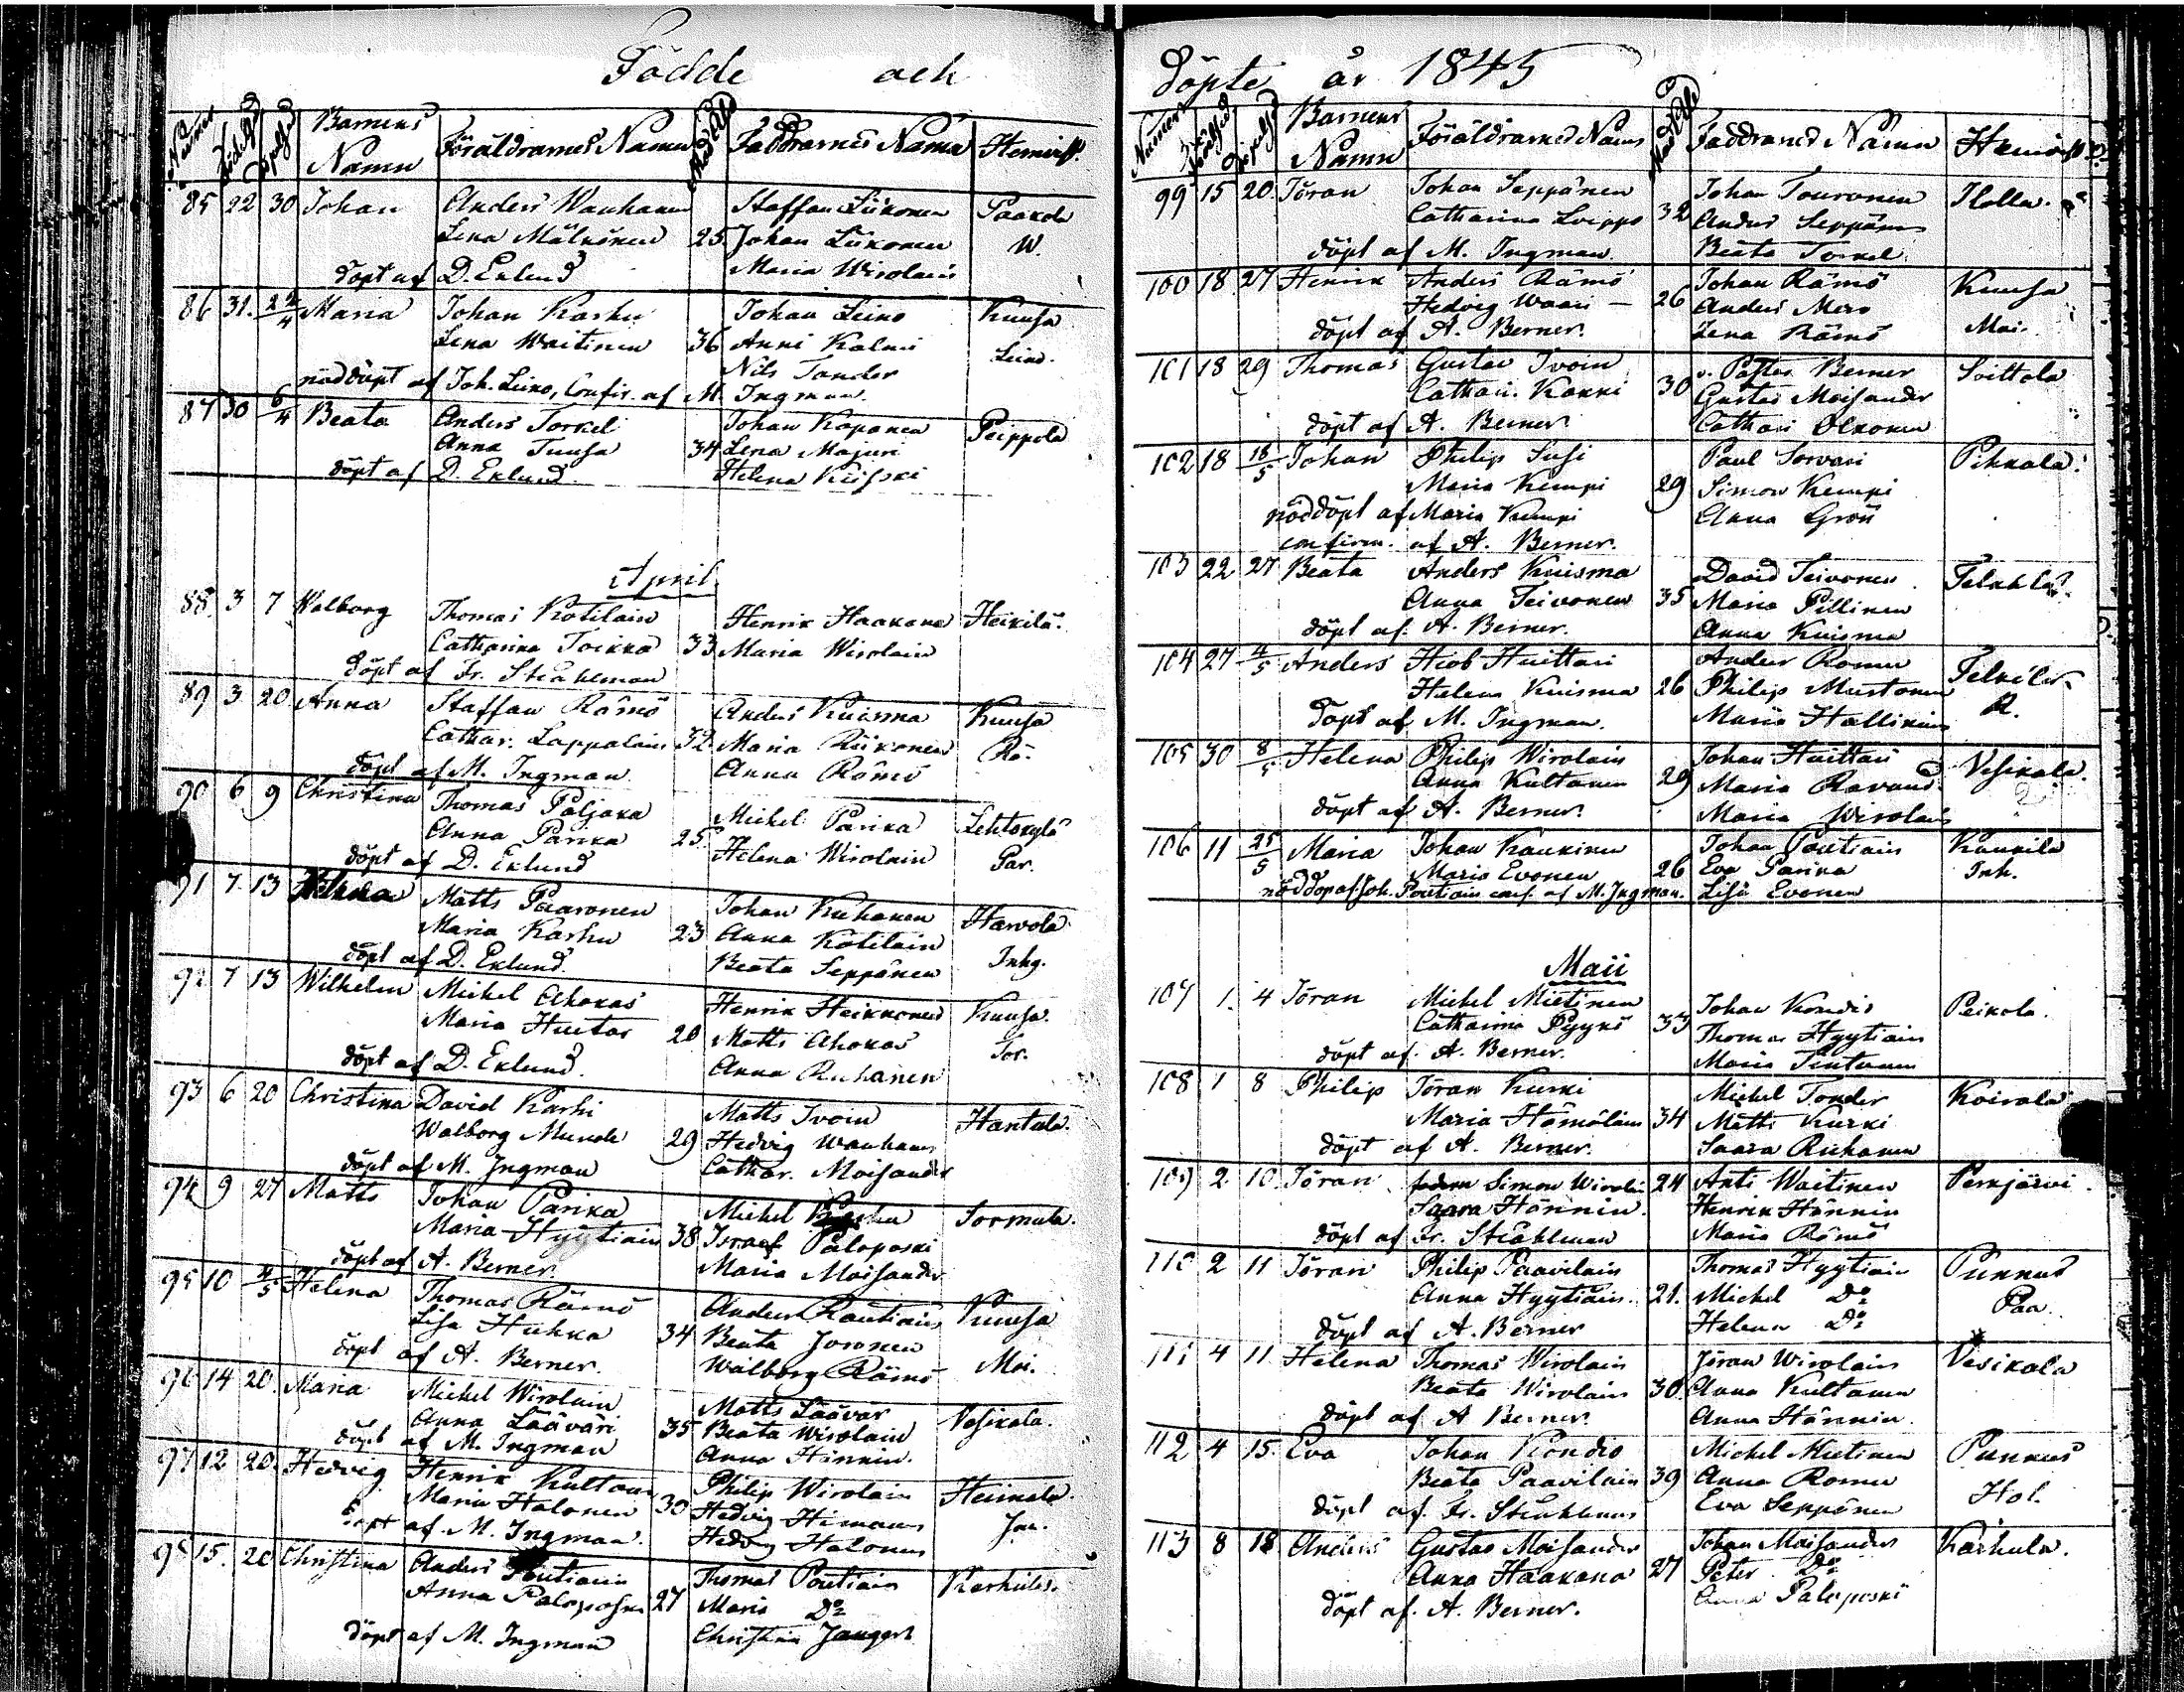 Födde och
Numer Födelsed Döpelsed Barnens Namn Föräldrarnes Namn Mod. Åld Faddrarnes Namn Hemvist
85 22 30 Johan Anders Wanhanen Staffan Liikonen Paakola
Lena Mälkönen 25 Johan Liikonen W.
döpt af D. Eklund Maria Wirolain
86 31. 22/4 Maria Johan Karhu Johan Leino Kuusa
Lena Waitinen 36 Anni Kalmi Leino.
Nils Tander
nöddöpt af Joh. Leino, Confir. af M. Ingman.
87 30 6/4 Beata Anders Torkel Johan Kaponen Peippola
Anna Tuusa 34 Lena Majuri
döpt af D. Eklund. Helena Kiisski
April
88. 3 7 Walborg Thomas Kotilain Henrik Haakana Heikilä.
Catharina Toikka 33 Maria Wirolain
döpt af Fr. Stråhlman
89 3 20 Anna Staffan Rämö Anders Kuisma Kuusa
Cathar. Lappalain 32 Maria Riikonen Rä.
döpt af M. Ingman. Anna Rämö
90 6 9 Christina Thomas Paljaka Michel Parika Lehtokylä
Anna Parika 25. Helena Wirolain Par.
döpt af D. Eklund
91 7 13 Helena Matts Paavonen Johan Kuhanen Hawola
Maria Karhu 23 Anna Kotilain Inkg.
döpt af D. Eklund. Beata Seppänen
92 7 13 Wilhelm Michel Ahokas Henrik Heikkonen Kuusa.
Maria Huitar 20 Matts Ahokas Tor.
döpt af D. Eklund. Anna Ruhanen
93 6 20 Christina David Karhi Matts Ivoin Hantula.
Walborg Munde 29 Hedvig Wanhanen
döpt af M. Ingman Cathar. Moisander
94 9 27 Matts Johan Parika Michel Sormula.
Maria Hyytiain 38 Israel Paloposki
döpt af A. Berner. Maria Moisander
95 10 4/5 Helena Thomas Rämö Anders Rautiain Kuusa
Lisa Hukka 34 Beata Joronen Moi.
döpt af A. Berner. Walborg Rämö
96 14 20. Maria Michel Wirolain Matts Läävär Vesikala.
Anna Lääväri 35 Beata Wirolain
döpt af M. Ingman Anna Hännin.
97 12 20. Hedvig Henrik Kultanen Philip Wirolain Heimala.
Maria Halonen 30 Hedvig Himanen Jaa.
döpt af M. Ingman. Hedvig Halonen
98 15. 20 Christina Anders Poutiain Thomas Poutiain Karhula.
Anna Paloposki 27 Maria Do
döpt af M. Ingman Christina Jaugert
döpte år 1845
Numer Födelsed Döpelsed Barnens Namn Föräldrarnes Namn Mod. Åld Faddrarnes Namn Hemvist
99 15 20. Jöran Johan Seppänen Johan Touronen Ilolla.
Catharina Loippo 32 Anders Seppänen
döpt af M. Ingman. Beata Torkel.
100 18. 27 Henrik Anders Rämö Johan Rämö Kuusa
Hedvig Waari 26 Anders Mero Moi.
döpt af A. Berner. Lena Rämö
101 18 29 Thomas Gustav Ivoin v. Pastor Berner Soittola
Cathari. Kokki 30 Gustav Moisander
döpt af A. Berner Cathari Olkonen
102 18 18/5 Johan Philip Susi Paul Sorvari Pihkala.
Maria Kemppi 29 Simon Kemppi
nöddöpt af Maria Kemppi Anna Grön
confirm. af A. Berner.
103 22 27 Beata Anders Kuisma David Teivonen
Anna Teivonen 35 Maria Pillinen
döpt af. A. Berner. Anna Kuisma
104 27 4/5 Anders Hiob Huittari Anders Romu
Helena Kuisma 26 Philip Mustonen R.
Döpt af M. Ingman. Maria Hallikain
105 30 8/5 Helena Philip Wirolain Johan Huittari Vesikala.
Anna Kultanen 29 Maria
döpt af A. Berner. Maria Wirolain
106 11 25/5 Maria Johan Kaukinen Johan Poutiain Kaukila
Maria Evonen 26 Eva Parika Ink.
nöddöp af Joh. Poutiain conf. af M. Ingman. Lisa Evonen
Maii
107 1. 4 Jöran Michel Mietinen Johan Kondis Peikola.
Catharina Pyykö 33 Thomas Hyytiain
döpt af. A. Berner. Maria Tintunen
108 1 8 Philip Jöran Kurki Michel Tonder Koirala
Maria Hämäläin 34 Matts Kurki
döpt af A. Berner. Saara Riikonen
109 2. 10. Jöran Simon Wirolain 24 Anti Waitinen Perkjärvi.
Saara Hännin. Henrik Hännin
döpt af Fr. Stråhlman Maria Rämö
110 2 11 Jöran Philip Paavilain Thomas Hyytiain Punnus
Anna Hyytiäin. 21. Michel Do Paa.
döpt af A. Berner Helena Do
111 4 11 Helena Thomas Wirolain Jöran Wirolain Vesikala
Beata Wirolain 30. Anna Kultanen
döpt af A Berner. Anna Hännin.
112 4 15. Eva Johan Kondio Michel Mietinen Punnus
Beata Paavilain 39 Anna Romu Hol.
döpt af. Fr. Stråhlman Eva Seppönen
113 8 18 Anders Gustav Moisander Johan Moisander Karhula.
Anna Haakana 27 Peter Do
döpt af. A. Berner. Anna Paloposki